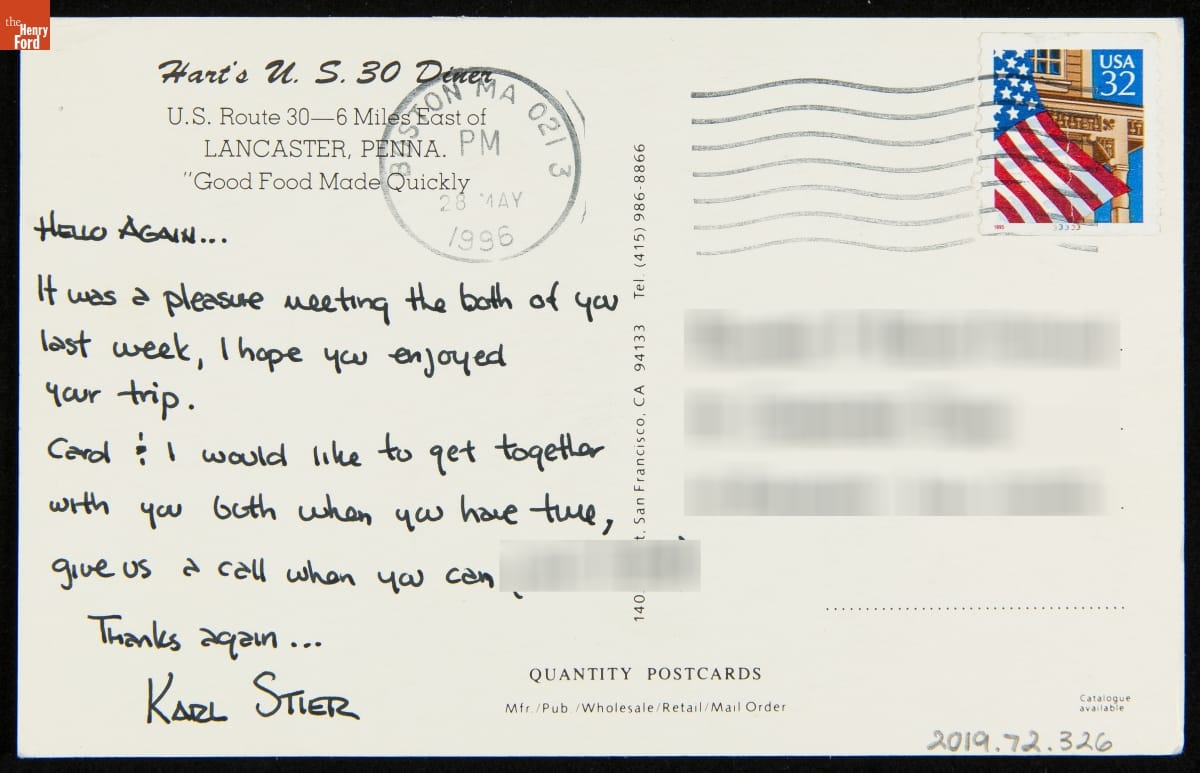 the
Henry
Ford
Hart's U. S. 30 Diner
U.S. Route 30—6 Miles East of
LANCASTER, PENNA.
"Good Food Made Quickly
BOSTON MA 021 3
PM
28 MAY
1996
USA
32
1995
33333
HELLO AGAIN...
It was a pleasure meeting the both of you
last week, I hope you enjoyed
your trip.
Carol & I would like to get together
with you both when you have time,
give us a call when you can
Thanks again...
KARL STIER
140 t, San Francisco, CA 94133 Tel. (415) 986-8866
QUANTITY POSTCARDS
Mfr./Pub./Wholesale/Retail/Mail Order
Catalogue
available
2019.72.326